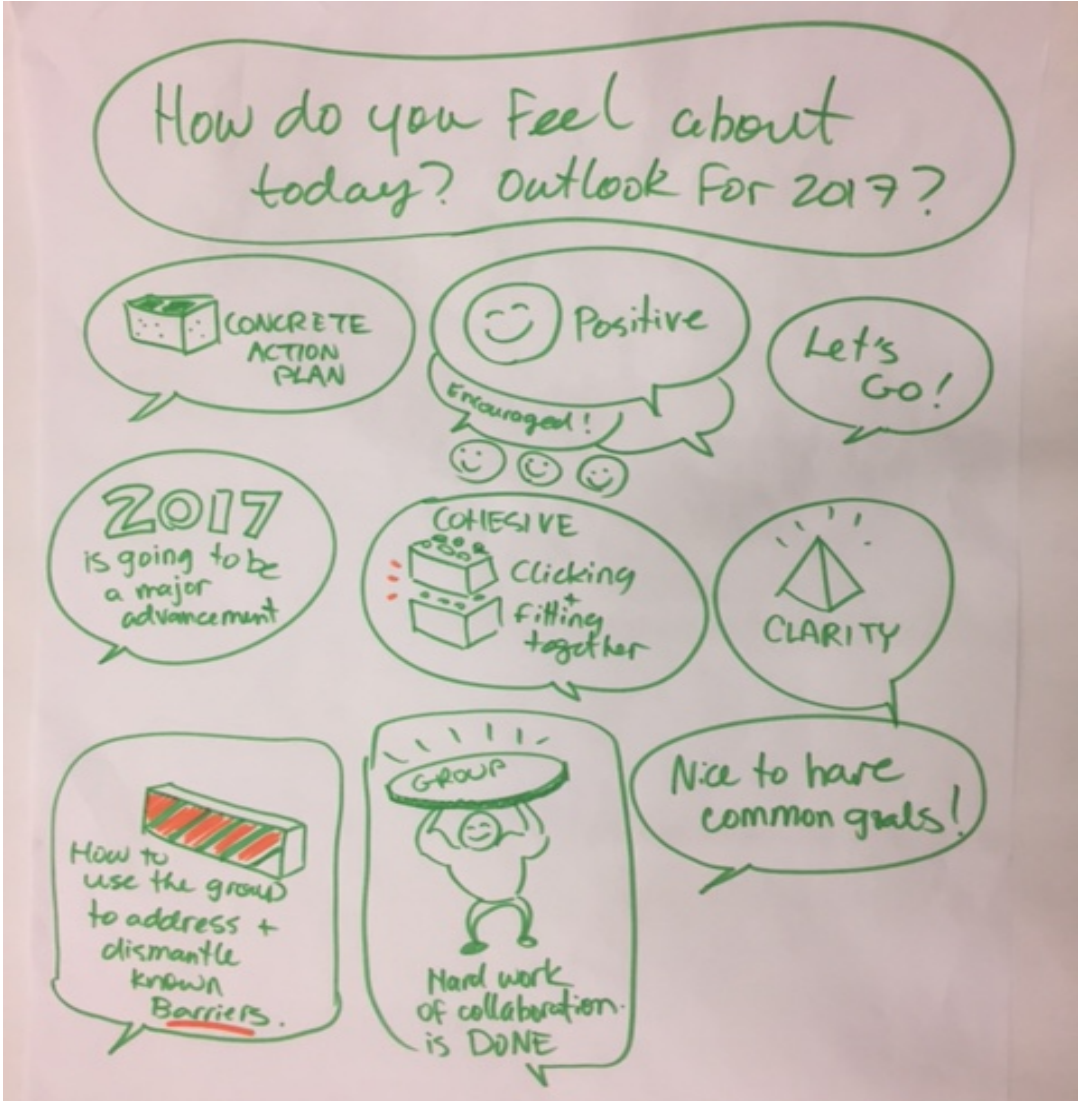 How do you Feel about
today? Outlook For 2017?
CONCRETE
ACTION
PLAN
Positive
Encouraged!
Let's
Go!
2017
is going to be
a major
advancement
COHESIVE
Clicking
+
fitting
together
CLARITY
How to
use the group
to address +
dismantle
known
Barriers.
GROUP
Hard work
of collaboration
is DONE
Nice to have
common goals!